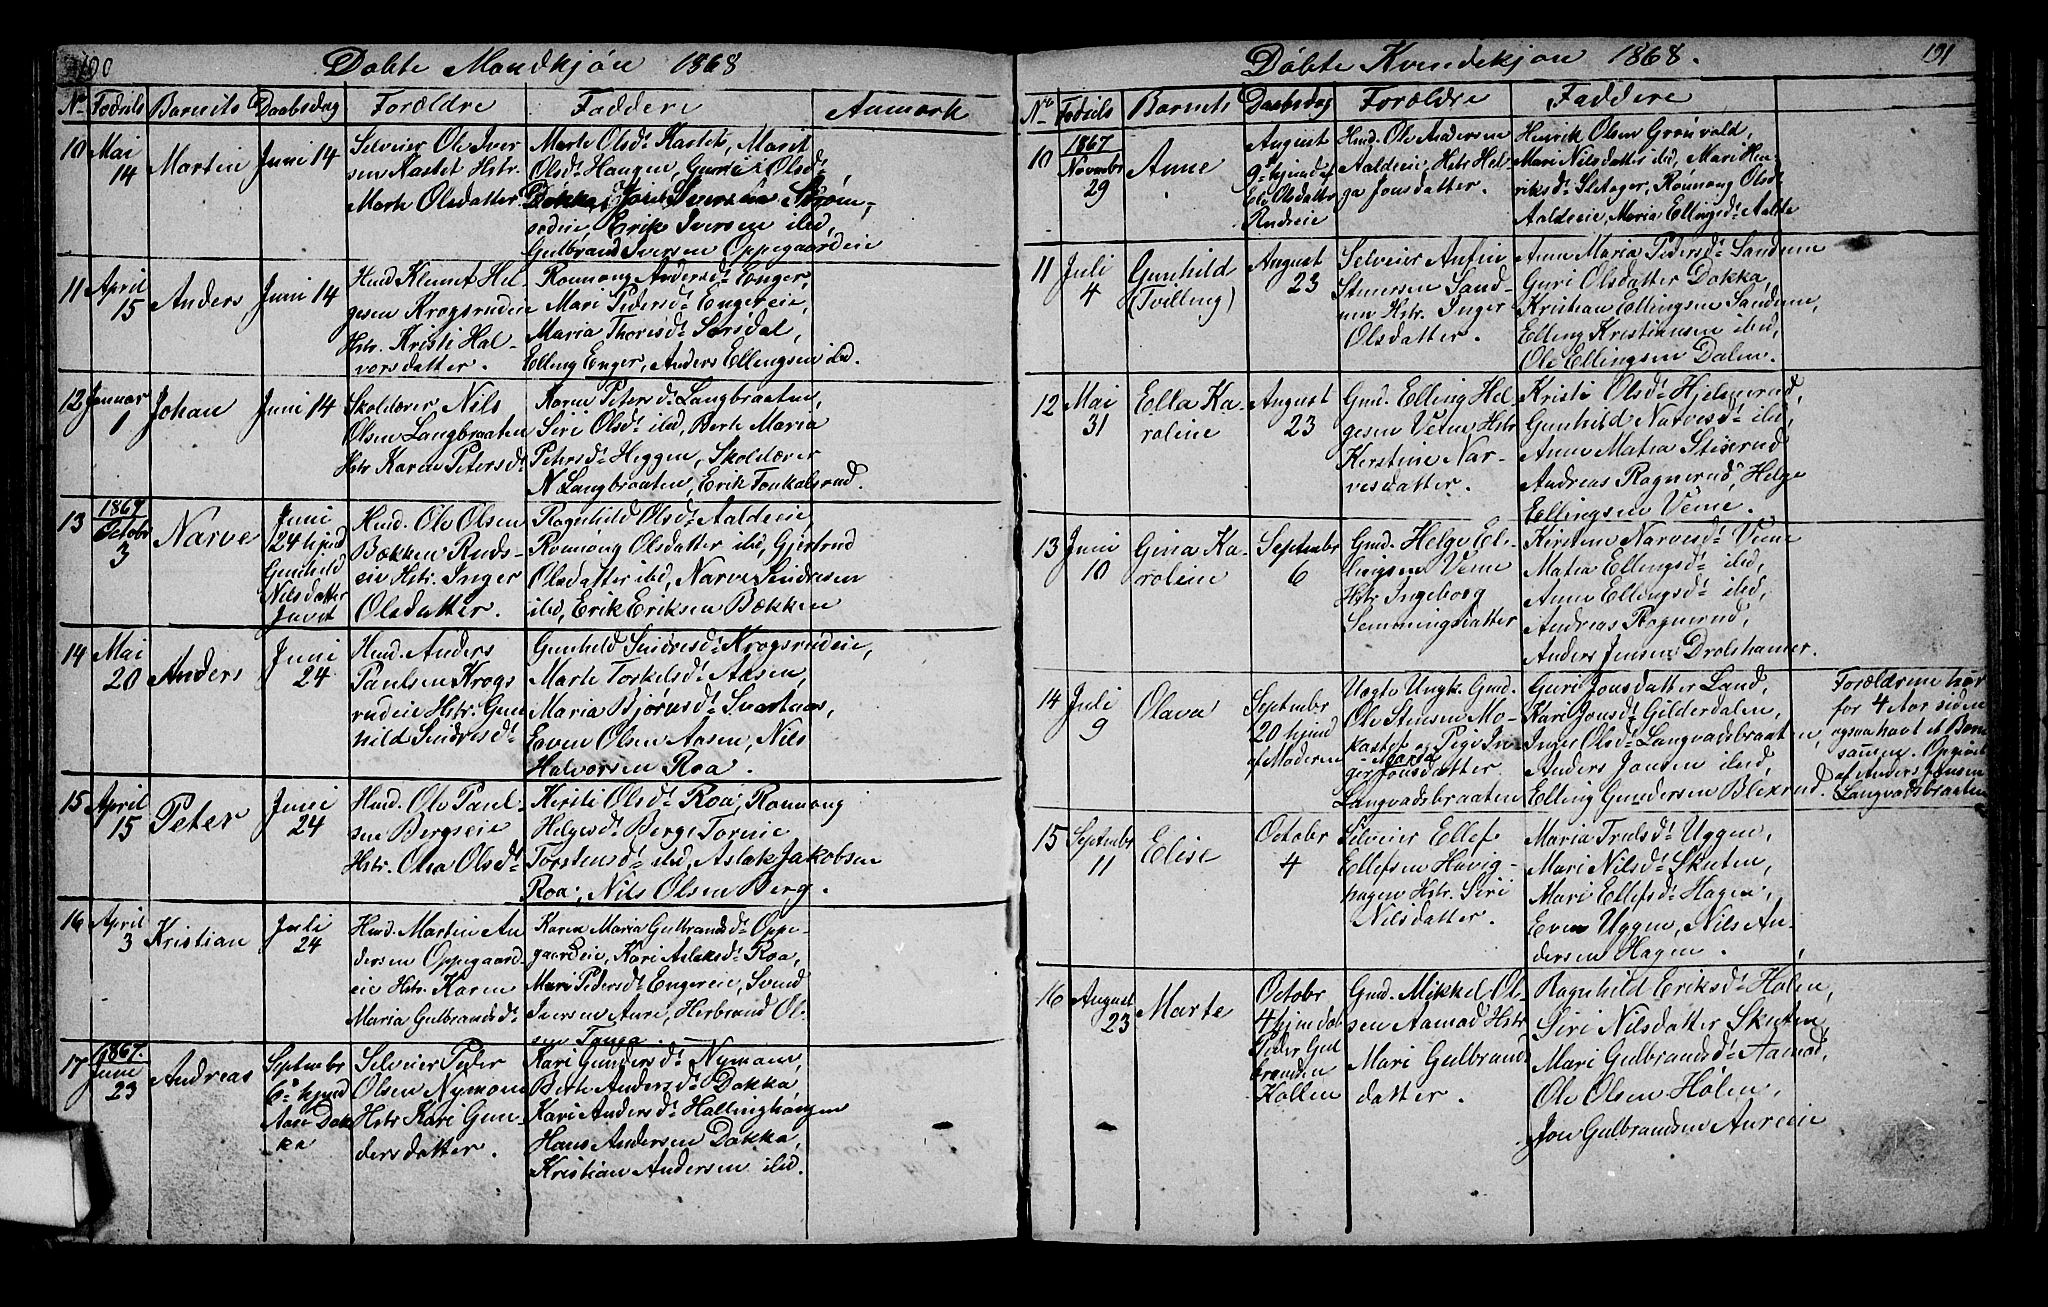 100
Døbte Mandkjøn 1868
No Fødsels Barnets Daabsdag Forældre Faddere Anmærk
10 Mai 14 Martin Juni 14
Selveier Ole Iver
sen Hstr.
Marte Olsdatter
Marte Olsdr. Marit
Olsdr. Haugen, Guri Olsdr.
Dokka,
Erik Iversen ibid,
Gulbrand Iversen Oppegaardeie
11 April 15 Anders Juni 14
Husd. Klemet Hel
gesen Krogsrudeie
Hstr. Kristi Hal-
vorsdatter.
Rønnong Andersdr. Enger,
Mari Pedersdr. Engereie,
Maria Thoresdr. Sørsdal,
Elling Enger, Anders Ellingsen ibid.
12 Januar 1 Johan Juni 14
Skolelærer Nils
Olsen Langbraaten
Hstr Karen Petersdr
Karen Petersdr Langbraaten,
Siri Olsdr ibid, Berte Maria
Petersdr Heggen, Skolelærer
N Langbraaten, Erik
13 1867 October 3 Narve
Juni
24 hjemd
Gunhild
Nilsdatter
Husd. Ole Olsen
Bækken Ruds-
eie Hstr. Inger
Olsdatter.
Ragnhild Olsdr Aaldeeie
Rønnong Olsdatter ibid, Gjertrud
Olsdatter ibid, Narve Sindresen
ibid, Erik Eriksen Bækken
14 Mai 20 Anders Juni 24
Husd. Anders
Paulsen Krogs
rudeie Hstr. Gun
hild Sindresdr
Gunhild Sindresdr Krogsrudeie,
Marte Torkelsdr Aasen,
Maria Bjørnsdr Svartaas,
Even Olsen Aasen, Nils
Halvorsen Roa.
15 April 15 Peter Juni 24
Husd. Ole Paul-
sen Bergseie
Hstr. Olea Olsdr
Kirsti Olsdr Roa, Rønnong
Helgesdr Berg, Torine
Torstensdr ibid, Aslak Jakobsen
Roa, Nils Olsen Berg.
16 April 3 Kristian Juli 24
Husd. Martin An
dersen Oppegaard-
eie Hstr. Karen
Maria Gulbrandsdr
Karen Maria Gulbrandsdr Oppe-
gaardeie, Kari Aslaksdr Roa,
Mari Pedersdr Engereie, Svend
Iversen Aure, Herbrand Ol-
sen
17 1867. Juni 23 Andreas
September
6 hjemd
Aase Dok
ka
Selveier Peder
Olsen Nymoen
Hstr Kari Gun-
dersdatter.
Kari Gundersdr Nymoen,
Berte Andersdr Dokka
Kari Andersdr Hallinghaugen
Hans Andersen Dokka,
Kristian Andersen ibid.
Døbte Kvindekjøn 1868.
101
No Fødsels Barnets Daabsdag Forældre Faddere
10 1867 Novembr 29 Anne
August
9 hjemd af
Eli Olsdatter
Rudseie
Husd. Ole Andersen
Aaldeeie, Hstr Hel-
ga Jonsdatter.
Henrik Olsen Grønvold,
Mari Nilsdatter ibid, Mari Hen-
riksdr. Sletager, Rønnong Olsdr
Aaldeeie, Maria Ellingsdr Aalde
11 Juli 4 Gunhild (Tvilling) August 23
Selveier Anfin
Steensen Sand-
nen Hstr. Inger
Olsdatter.
Anne Maria Pedersdr Sandnen
Guri Olsdatter Dokka,
Kristian Ellingsen Sandnen,
Elling Kristiansen ibid,
Ole Ellingsen Dalen.
12 Mai 31 Ella Ka-roline August 23
Gmd. Elling Hel-
gesen Veme Hstr
Kerstine Nar-
vesdatter.
Kristi Olsdr Hjelmerud,
Gunhild Narvesdr ibid,
Anne Matea Stiserud
Andreas Rognerud, Helge
Ellingsen Veme.
13 Juni 10 Gina Ka-roline September 6
Gmd. Helge El-
lingsen Veme
Hstr Ingeborg
Semmingsdatter
Kersten Narvesdr Veme
Matea Ellingsdr ibid,
Anne Ellingsdr ibid,
Andreas Rognerud,
Anders Jensen Drolshamer.
14 Juli 9 Olava
September
20 hjemd
af Moderen
Uægte Ungk. Gmd.
Ole Steensen Mo-
kastet og Pige In-
ger Maria Jonsdatter
Langvadsbraaten
Guri Jonsdatter Land,
Kari Jonsdr Gilderdalen,
Inger Olsdr Langvadsbraaten,
Anders Jonsen ibid,
Elling Gundersen Blexrud.
Forældrene har
for 4 Aar siden
ogsaa havt et Barn
sammen. Opgivet
af Anders Jonsen
Langvadsbraaten
15 September 11 Elise October 4
Selveier Ellef
Ellefsen Havig-
hagen Hstr. Siri
Nilsdatter.
Maria Trulsdr Uggen,
Mari Nilsdr Skuten,
Mari Ellefsdr Hagen,
Even Uggen, Nils An-
dersen Hagen.
16 August 23 Marte
Octobr
4 hjemdøbt
Peder Gul
brandsen
Kollen
Gmd. Mikkel Ol-
sen Aamod Hstr
Mari Gulbrands
datter.
Ragnhild Eriksdr Hølen,
Siri Nilsdatter Skuten
Mari Gulbrandsdr Aamod,
Ole Olsen Hølen,
Jon Gulbrandsen Aureeie